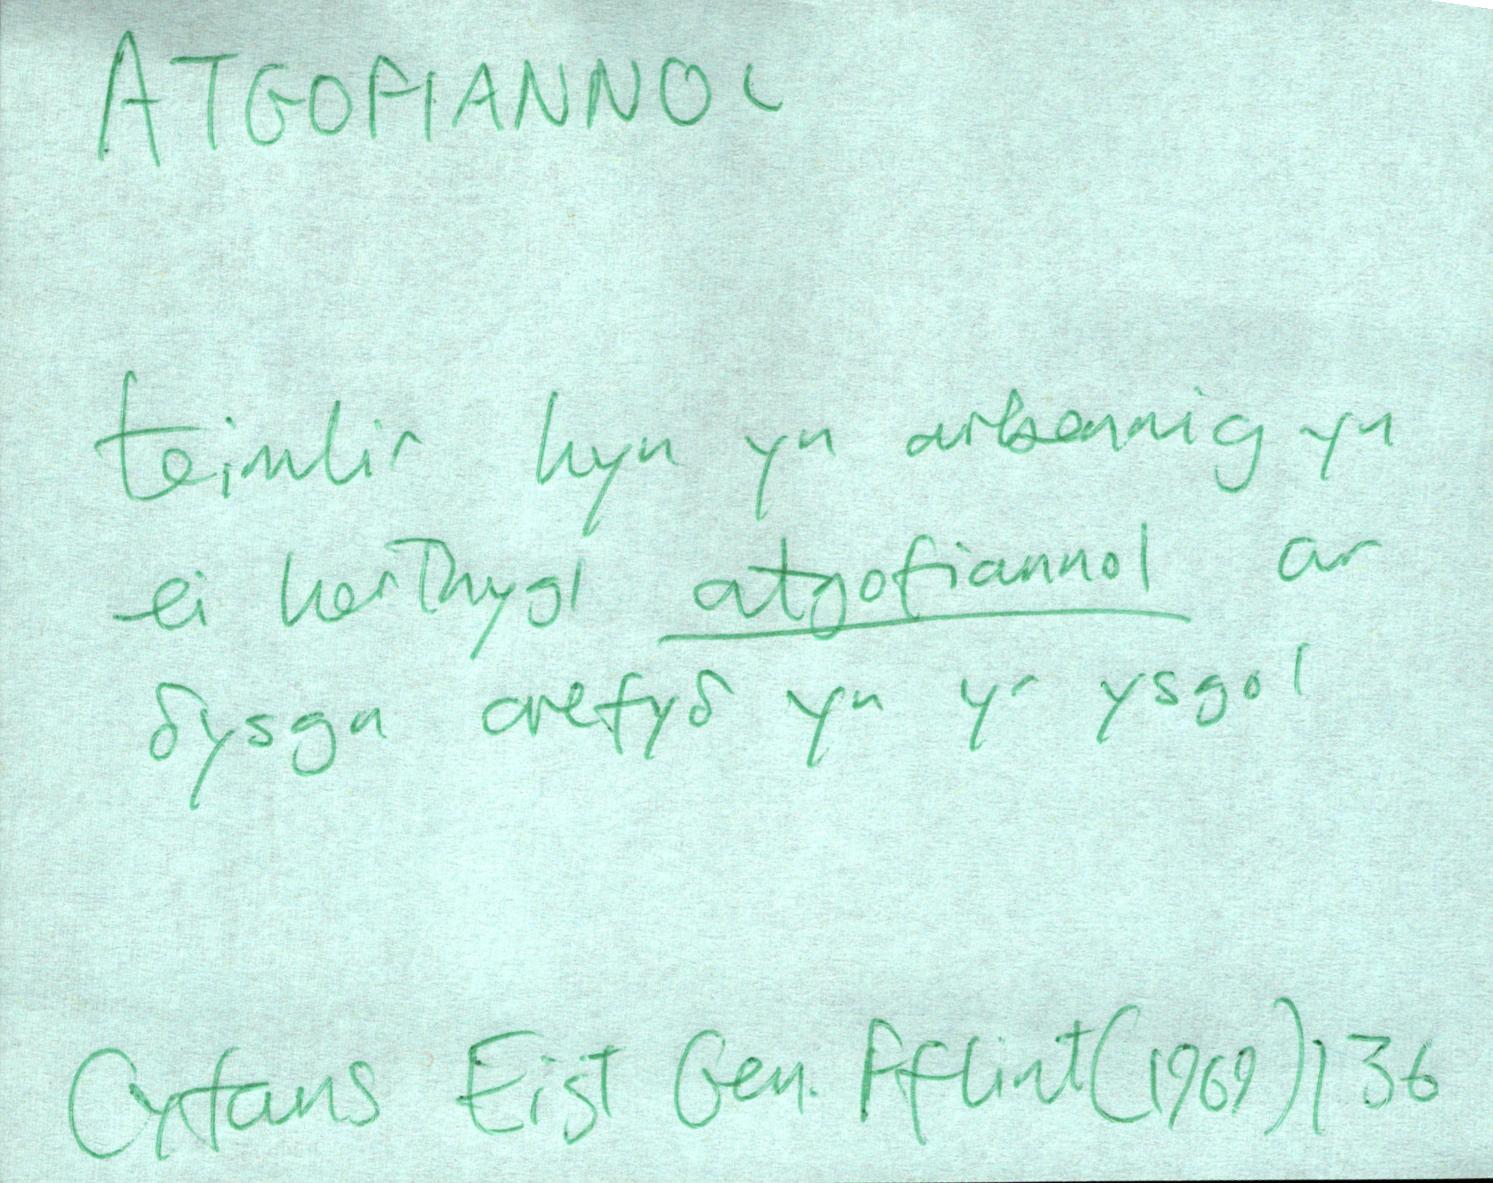 ATGOFIANNOL
teimlir hyn yn arbennig yn
ei herthygl atgofiannol ar
δysgu crefyδ yn yr ysgol
Cyfans Eist Gen. Fflint (1969) 136